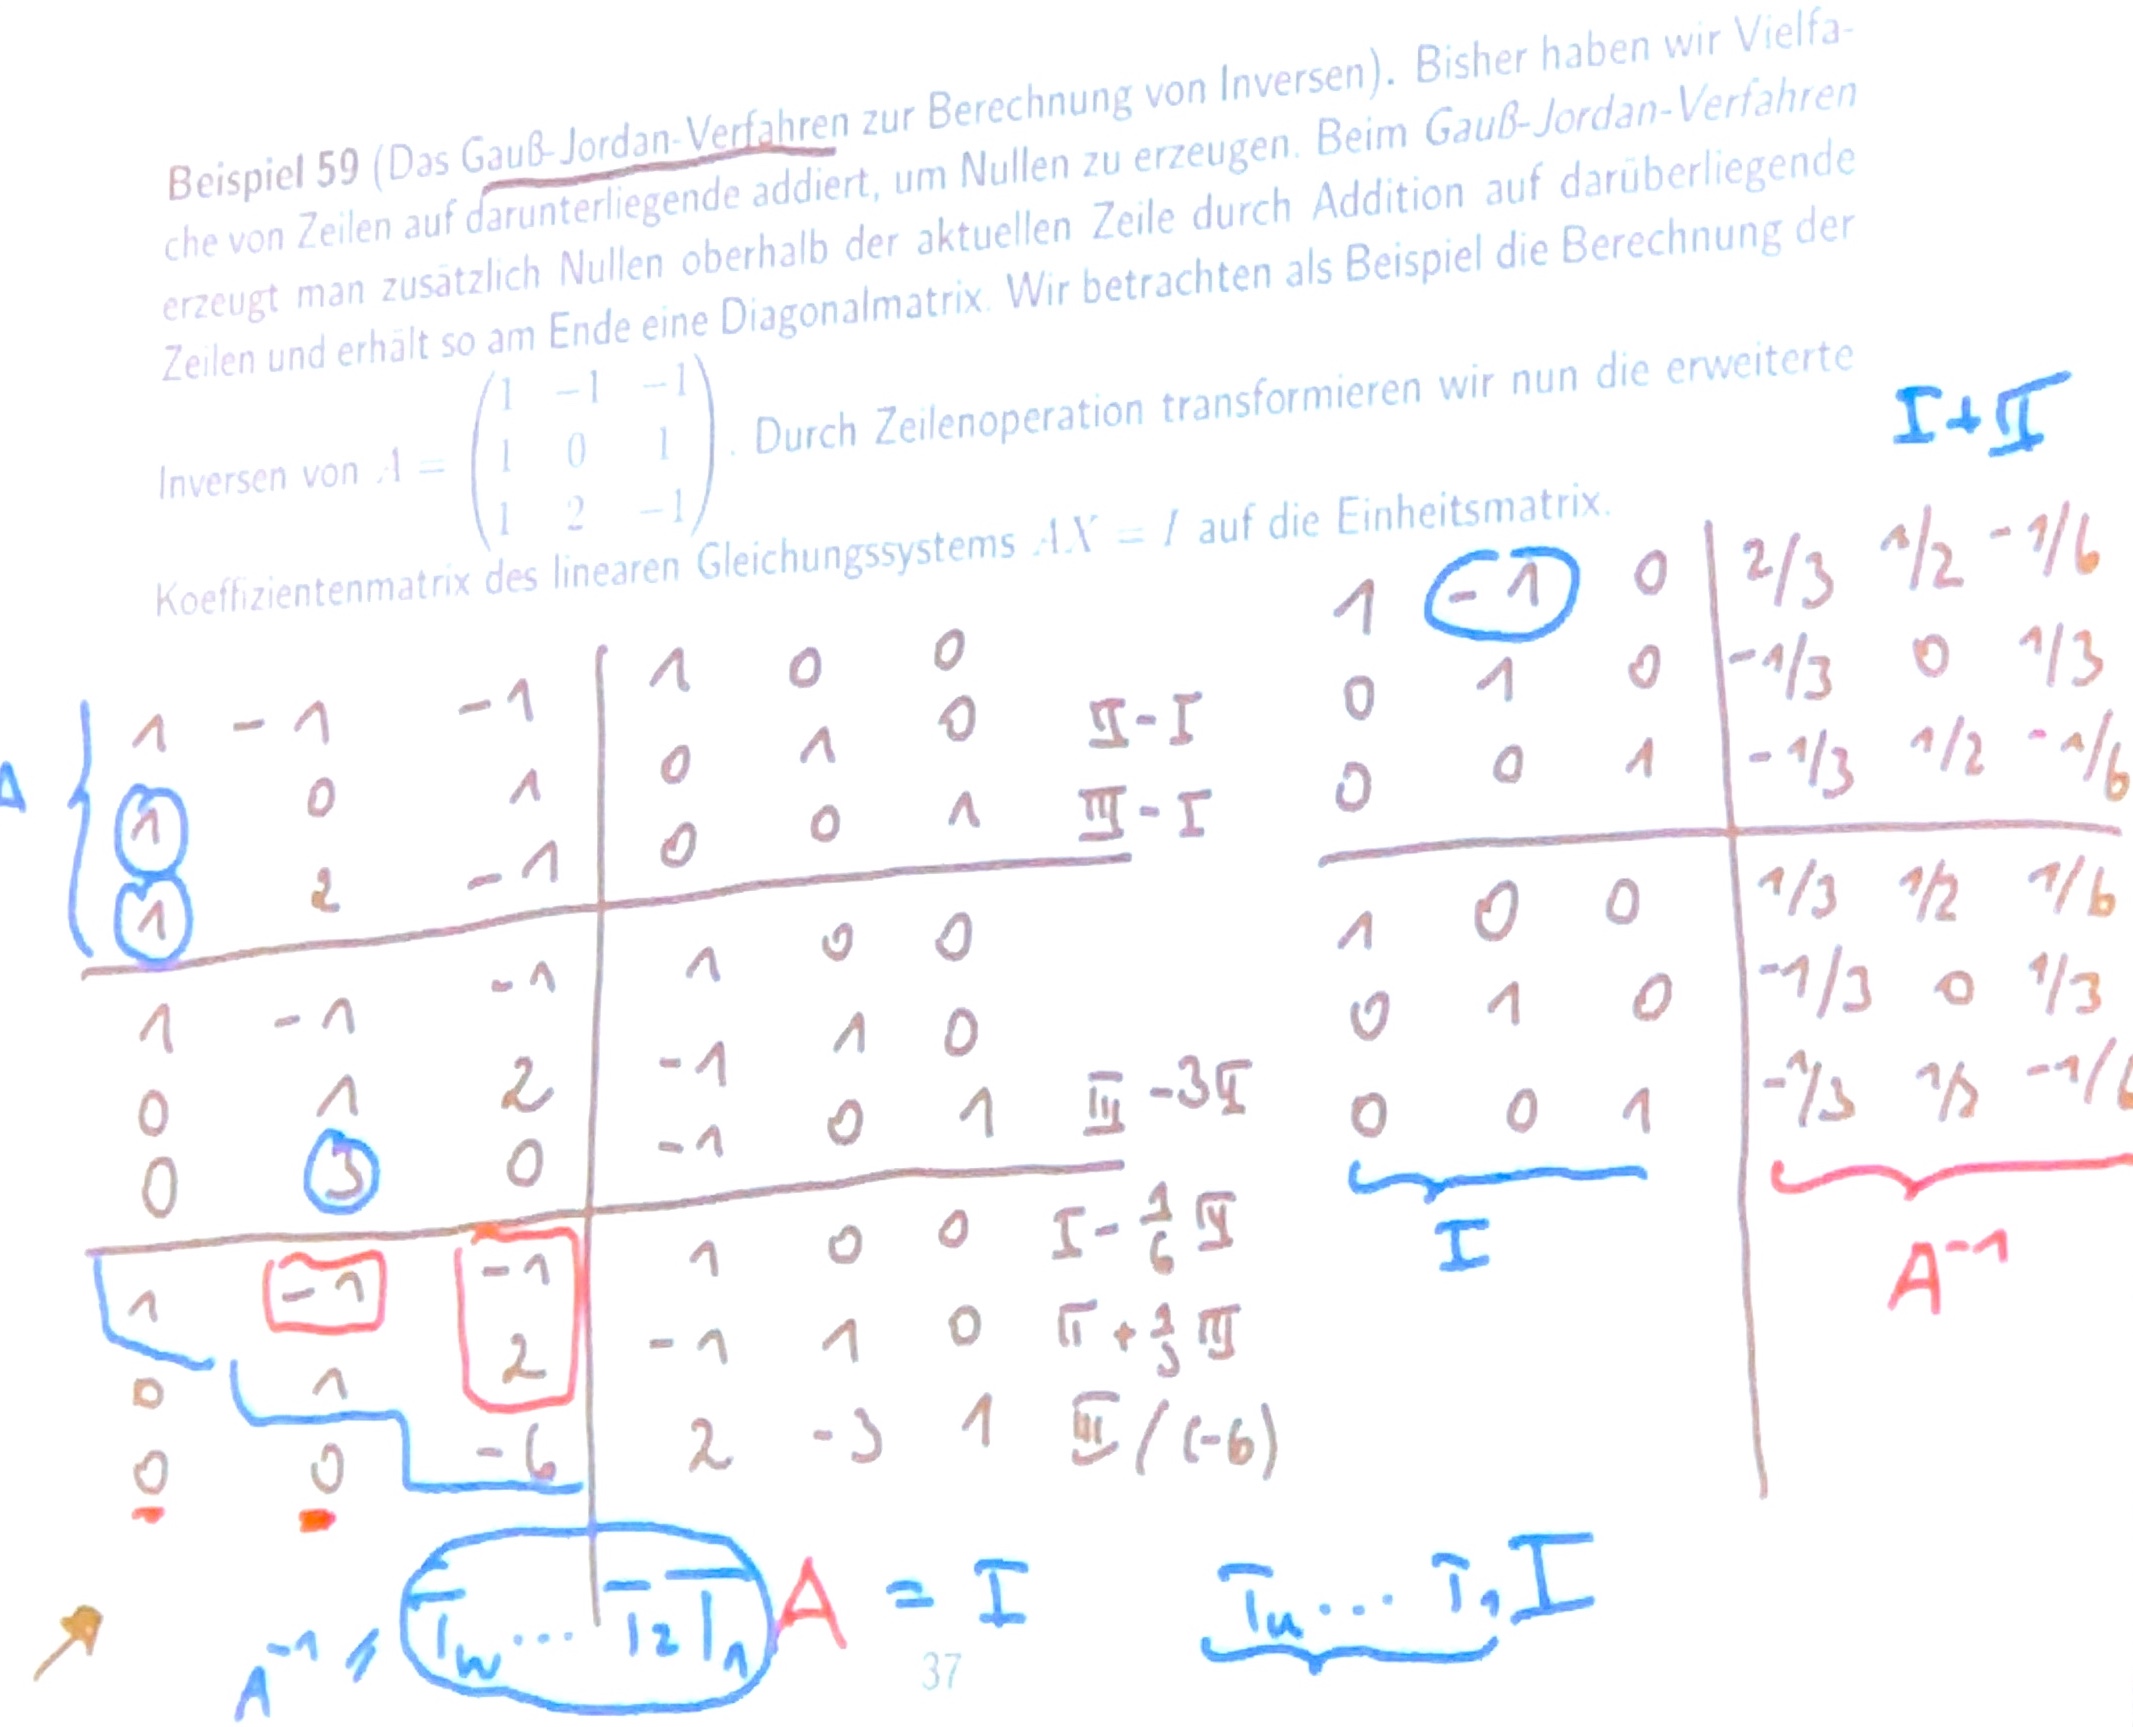 Beispiel 59 (Das Gauß-Jordan-Verfahren zur Berechnung von Inversen). Bisher haben wir Vielfa-
che von Zeilen auf darunterliegende addiert, um Nullen zu erzeugen. Beim Gauß-Jordan-Verfahren
erzeugt man zusätzlich Nullen oberhalb der aktuellen Zeile durch Addition auf darüberliegende
Zeilen und erhält so am Ende eine Diagonalmatrix. Wir betrachten als Beispiel die Berechnung der
1 -1 -1
Inversen von A = 1 0 1 . Durch Zeilenoperation transformieren wir nun die erweiterte
1 2 -1
Koeffizientenmatrix des linearen Gleichungssystems AX = I auf die Einheitsmatrix.
A
1 -1 -1 | 1 0 0
1 0 1 | 0 1 0 II-I
1 2 -1 | 0 0 1 III-I
1 -1 -1 | 1 0 0
0 1 2 | -1 1 0
0 3 0 | -1 0 1 III-3II
1 -1 -1 | 1 0 0 I-1/6 III
0 1 2 | -1 1 0 II+1/3 III
0 0 -6 | 2 -3 1 III/(-6)
I+II
1 -1 0 | 2/3 1/2 -1/6
0 1 0 | -1/3 0 1/3
0 0 1 | -1/3 1/2 -1/6
1 0 0 | 1/3 1/2 1/6
0 1 0 | -1/3 0 1/3
0 0 1 | -1/3 1/2 -1/6
I A⁻¹
A⁻¹ = Tn ... T2 T1 A = I Tn ... T1 I
37